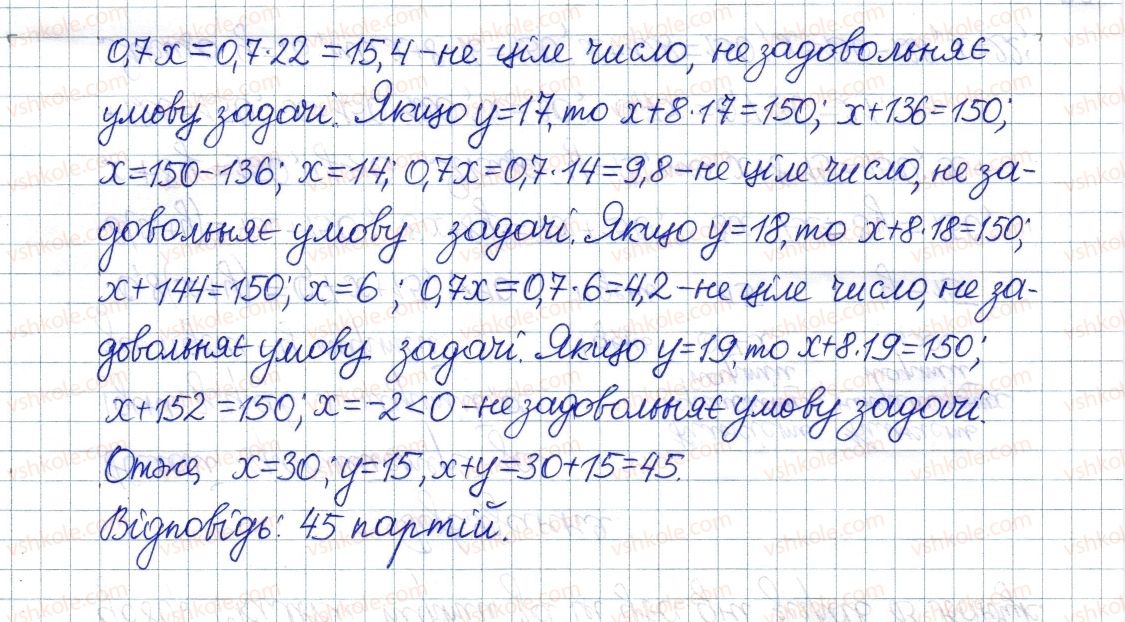 0,7x=0,7·22=15,4-не ціле число, не задовольняє
умову задачі. Якщо y=17, то x+8·17=150; x+136=150;
x=150-136; x=14; 0,7x=0,7·14=9,8-не ціле число, не за-
довольняє умову задачі. Якщо y=18, то x+8·18=150;
x+144=150; x=6; 0,7x=0,7·6=4,2-не ціле число, не за-
довольняє умову задачі. Якщо y=19, то x+8·19=150;
x+152=150; x=-2<0-не задовольняє умову задачі.
Отже, x=30; y=15, x+y=30+15=45.
Відповідь: 45 партій.